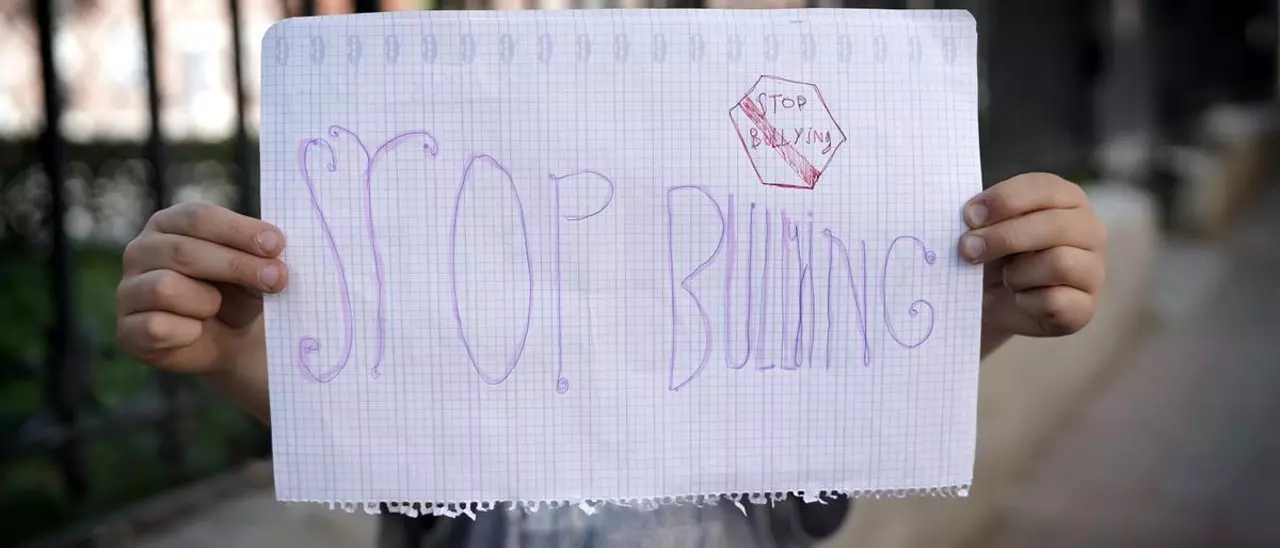 STOP
BULLYing
STOP BULLYING